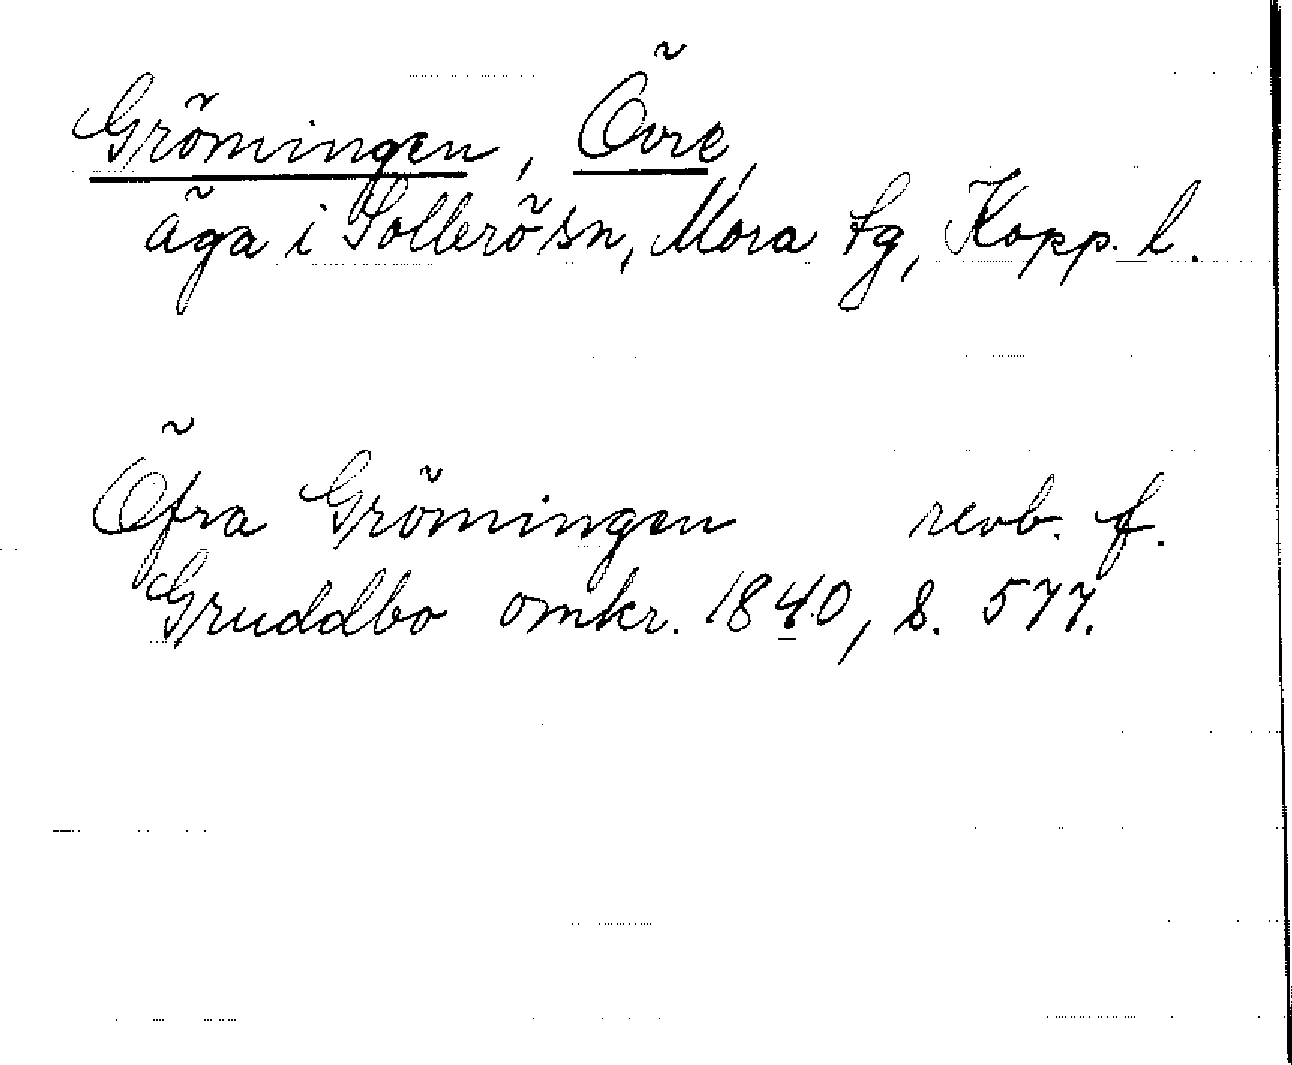 Gröningen, Övre,
äga i Sollerö sn, Mora tg, Kopp. l.
Öfra Gröningen revb. f.
Gruddbo omkr. 1840, s. 577.